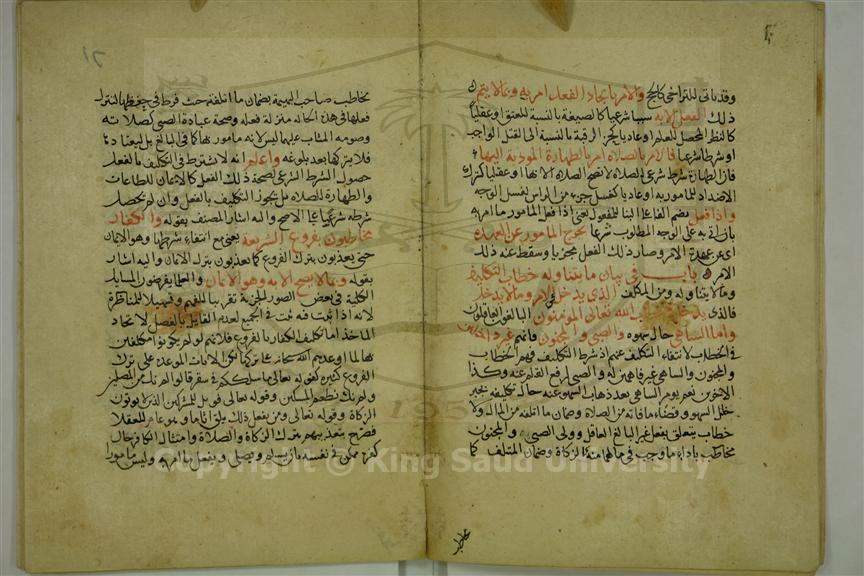 وقد ياتي للتراخي كالحج والامر بايجاد الفعل امر به وبما لا يتم
ذلك الفعل الا به سببا شرعيا كالصيغة بالنسبة للعتق او عقليا
كالنظر المحصل للعلم او عاديا كحز الرقبة بالنسبة الى القتل الواجب
او شرطا شرعيا فالامر بالصلاه امر بالطهارة المودية اليها
فان الطهارة شرط شرعي للصلاة لا تصح الصلاة الا بها او عقليا كترك
الاضداد للمامور به او عاديا كغسل جزء من الراس لغسل الوجه
واذا فعل بضم الفاء البنا للمفعول يعني اذا فعل المامور ما امر به
بان اتى به على الوجه المطلوب شرعا يخرج المامور عن العهده
اي عن عهدة الامر وصار ذلك الفعل مجزيا وسقط عنه ذلك
الامر باب في بيان ما يتناوله خطاب التكليف
وما لا يتناوله ومن المكلف الذي يدخل في الامر وما لا يدخل
فالذي يدخل في خطاب الله تعالى المؤمنون البالغون العاقلون
واما الساهي حال سهوه والصبي والمجنون فانهم غير داخلين
في الخطاب لانتفاء التكليف عنهم اذ شرط التكليف فهم الخطاب
والمجنون والساهي غير فاهمين له والصبي لرفع القلم عنه وكذا
الاخرين نعم يومر الساهي بعد ذهاب السهو عنه حال تكليفه بجبر
خلل السهو وقضاء ما فاته من الصلاة وضمان ما اتلفه من المال ولا
خطاب يتعلق بفعل غير البالغ العاقل وولي الصبي والمجنون
مخاطب باداء ما وجب في مالهما منه كالزكاة وضمان المتلف كما
يخاطب
١٢
يخاطب صاحب البهيمة بضمان ما اتلفته حيث فرط في حفظها لتنزل
فعلها في هذه الحاله منزلة فعله وصحة عبادة الصبي كصلاته
وصومه المثاب عليهما ليس لانه مامور بها كما في البالغ بل ليعتادها
فلا يتركها بعد بلوغه واعلم انه لا يشترط في التكليف بالفعل
حصول الشرط الشرعي لصحة ذلك الفعل كالايمان للطاعات
والطهارة للصلاه بل يجوز التكليف بالفعل وان لم يحصل
شرطه شرعيا على الاصح واليه اشار المصنف بقوله والكفار
مخاطبون بفروع الشريعة يعني مع انتفاء شرطها وهو الايمان
حتى يعذبون بترك الفروع كما يعذبون بترك الايمان واليه اشار
بقوله وبما لا يصح الا به وهو الايمان والعلما يفرضون المسايل
الكلية في بعض الصور الجزية تقريبا للفهم وتسهيلا للمناظرة
لانه اذا ثبت فيه ثبت في الجميع لعدم القايل بالفصل لاتحاد
الماخذ اما تكليف الكفار بالفروع فلانهم لو لم يكونوا مكلفين
بها لما اوعدهم الله سبحانه على تركها لكن الايات الموعدة على ترك
الفروع كثيرة كقوله تعالى ما سلككم في سقر قالوا لم نك من المصلين
ولم نك نطعم المسكين وقوله تعالى فويل للمشركين الذين لا يوتون
الزكاة وقوله تعالى ومن يفعل ذلك يلق اثاما وهو عام للعقلا
فصرح بتعذيبهم بترك الزكاة والصلاة وامتثال الكافر حال
كفره ممكن في نفسه بان يسلم ويصلي ويفعل ما امر به وليس مامورا
Copyright © King Saud University
1957